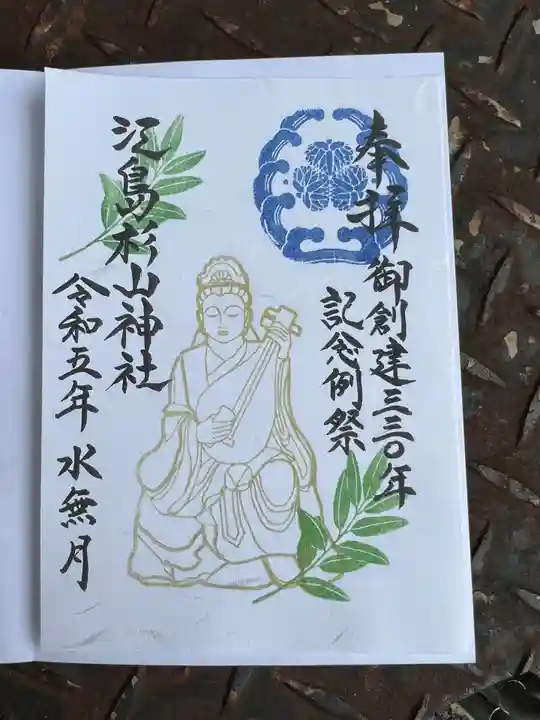 奉拝 御創建三三〇年
記念例祭
江島杉山神社
令和五年 水無月